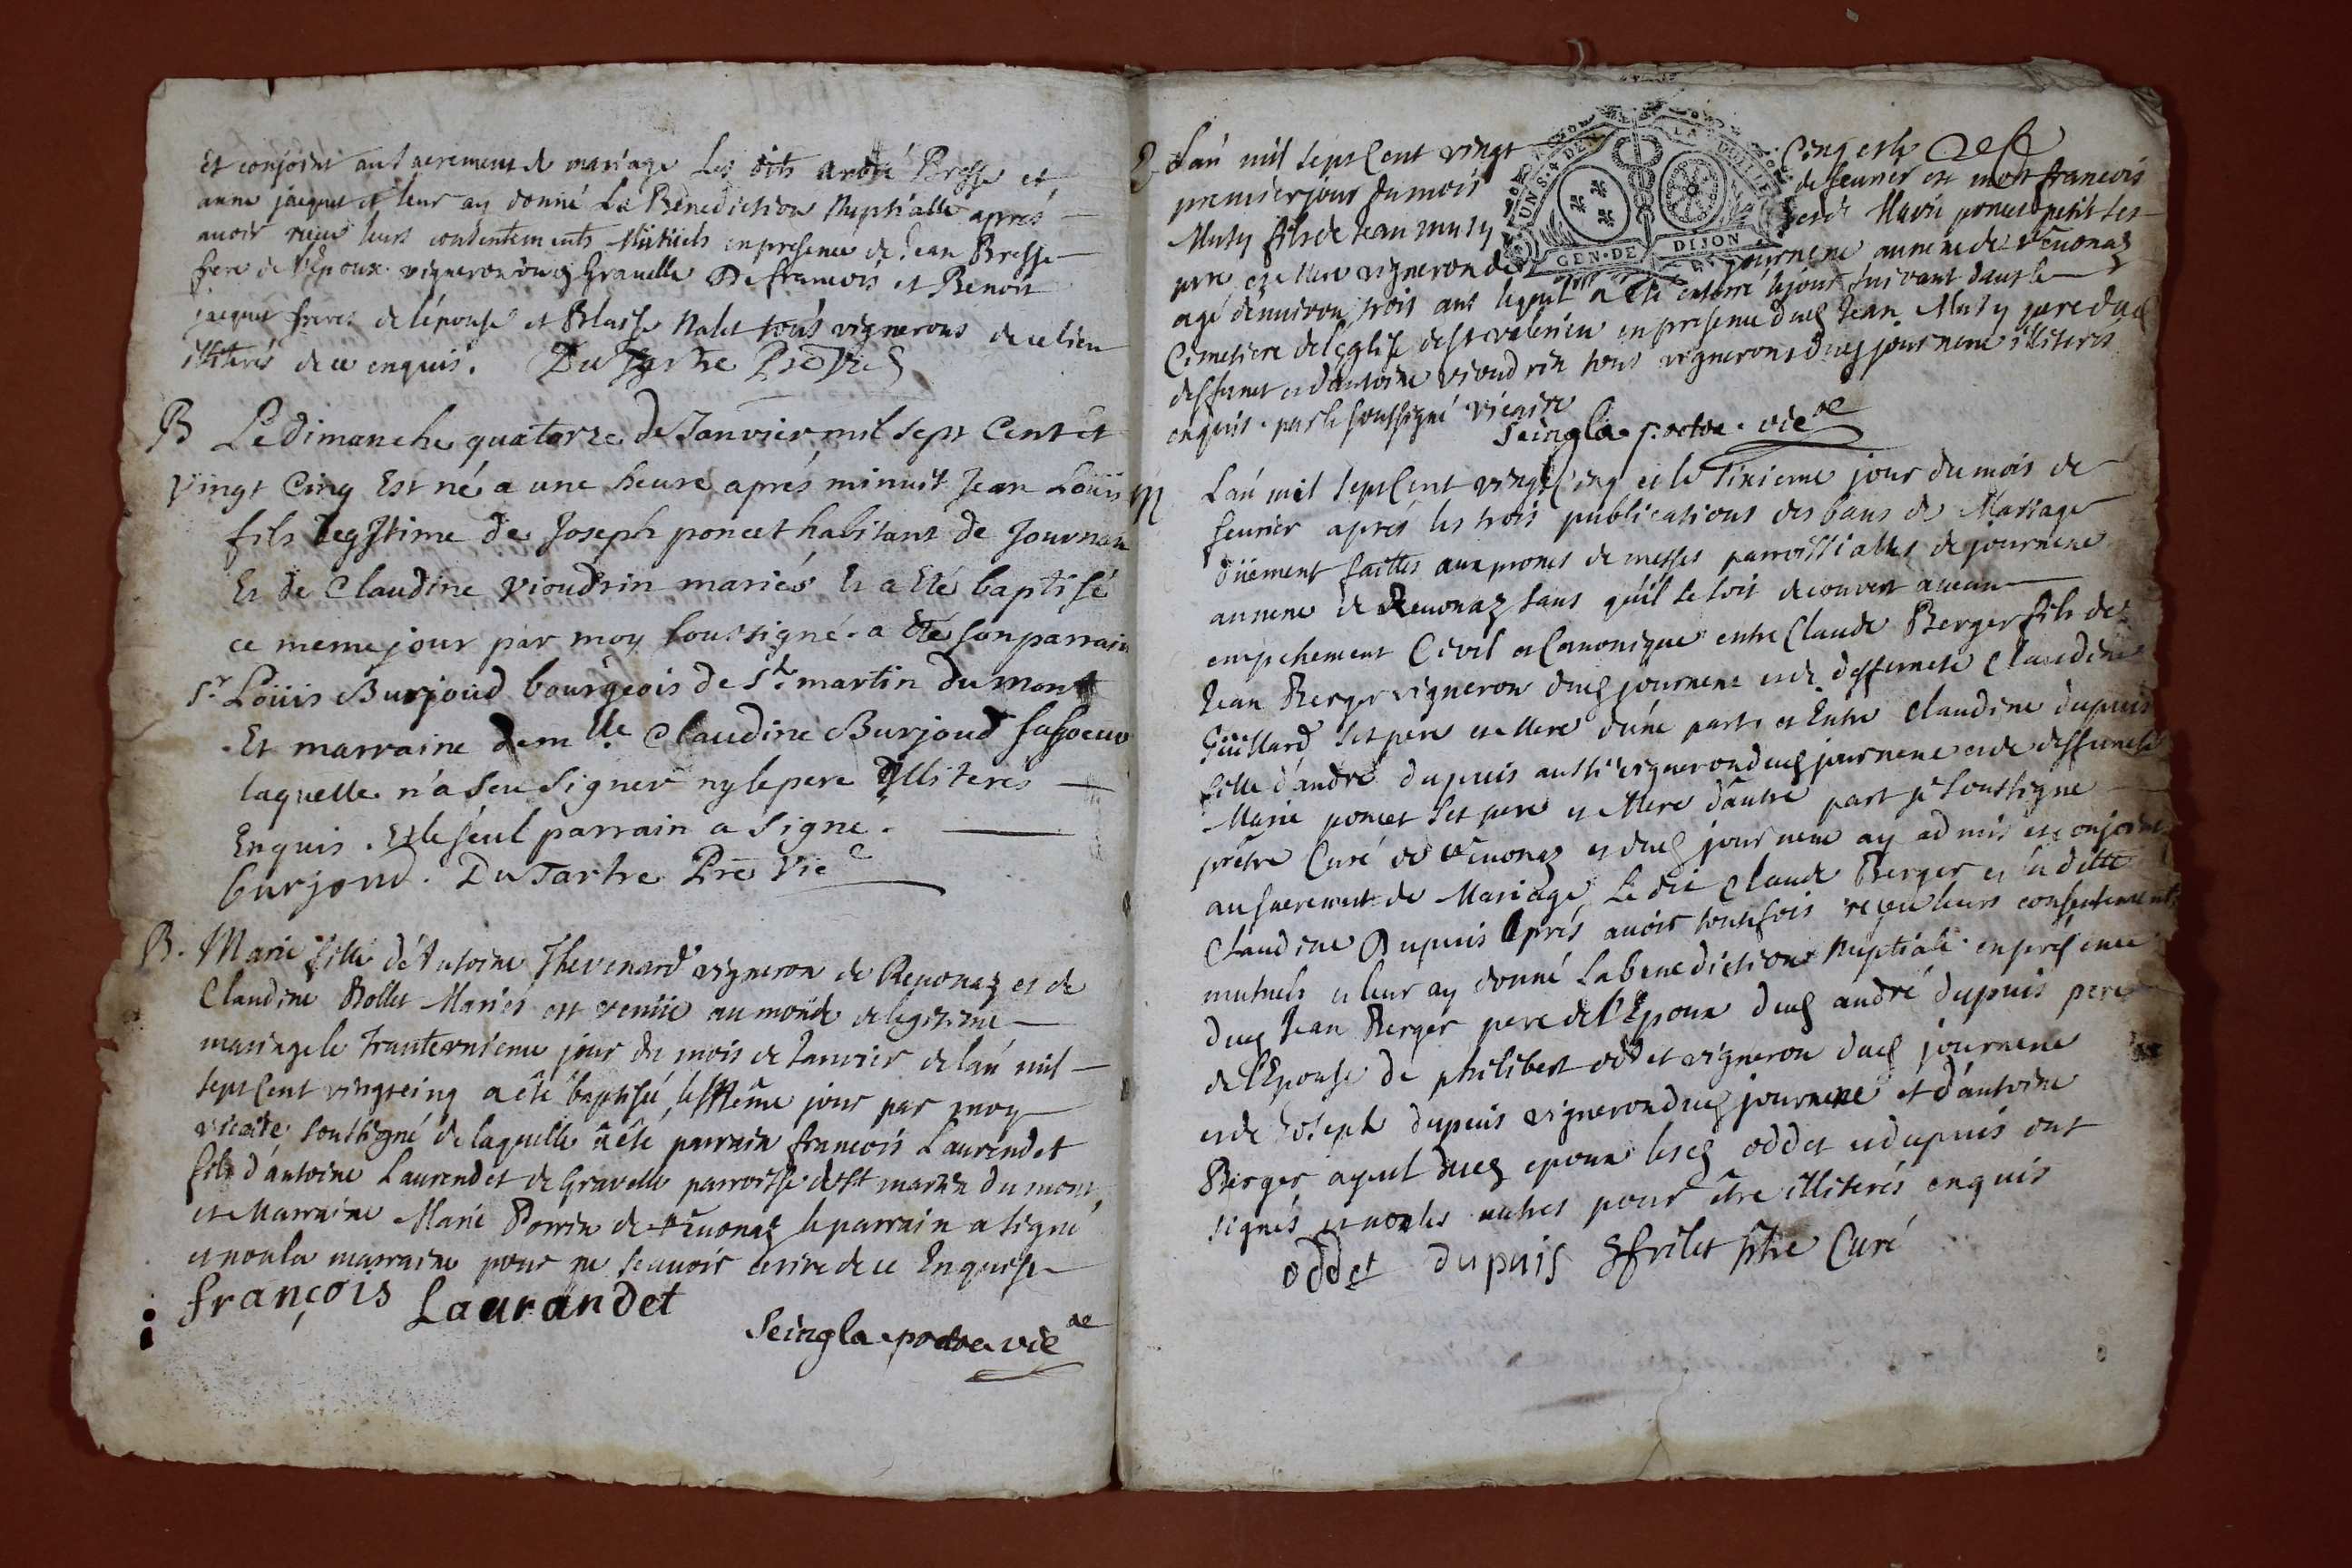 Et conjoint au Sacrement de mariage Les dits andré Bresse et
anne jaquet et leur ay donné La Benediction Nuptialle aprés
avoir reçeu leurs consentements Mütüels en presence de Jean Bresse
frere de l'Epoux vigneron Gravelle De francois et Benoit
jaquet freres de l'épouse et Blaise Nalet tous vignerons de ce lieu
illiterés de ce enquis. DuTartre Pre Vic
B Le dimanche quatorze de Janvier mil sept Cent et
Vingt Cinq Est né a une heure aprés minuit Jean Loüis
fils legJtime de Joseph poncet habitant de Journan
Et de Claudine vioudrin mariés Et a Eté baptisé
ce meme jour par moy soussigné. a Eté son parrain
Sr. Loüis Burjoud bourgeois de St. martin du mont
Et marraine demlle. Claudine Burjoud sa soeur
laquelle n'a sceu signer ny le pere Jlliterés
Enquis. Et le seul parrain a signe.
burjoud. DuTartre Pre Vic
B. Marie fille d'Antoine Thevenard vigneron de Revonaz et de
Claudine Rollet Mariés est venüe au monde de legitime
mariage le Trantevnieme jour du mois de Janvier de l'an mil
sept Cent vingt cinq a été baptisée le Même jour par moy
vicaire soussigné de laquelle a été parrain francois Laurendet
fils d'antoine Laurendet de Gravelle parroisse de St martin du mont
et Marraine Marie Perrin de Revonaz le parrain a signé
et non la marraine pour ne scavoir ecrire de ce Enquise
françois Laurandet
Seingla vic
L'an mil sept Cent vingt Cinq et le
premier jour du mois de fevrier est mort francois
Muty fils de Jean Muty et de Marie poncet petit ses
pere et Mere vigneron de journene annexe de Revonaz
agé d'environ trois ans lequel a été enterré le jour suivant dans le
Cimetiere de l'Eglise de St valerien en presence dud Jean Muty pere dud
deffunct et d'antoine vioudrin tous vignerons dud journene illiterés
enquis. par le soussigné vicaire
Seingla vic
GEN. DE DIJON
M L'an mil sept Cent vingt Cinq et le sixieme jour du mois de
fevrier aprés les trois publications des bans de Mariage
düement faittes aux prones de messes parroissialles de journene
annexe de Revonaz sans qu'il se soit decouvert aucun
empechement Civil et Canonique entre Claude Berger fils de
Jean Berger vigneron dud journene et de deffuncte Claudine
Guillard ses pere et Mere d'une part, et Entre Claudine dupuis
fille d'andré dupuis aussi vigneron dud journene et de deffuncte
Marie poncet ses pere et Mere d'autre part je soussigné
prêtre Curé de Revonaz et dud journene ay admis et conjoint
au sacrement de Mariage Le dit Claude Berger et la ditte
Claudine Dupuis aprés avoir toutefois reçeu leurs consentements
mutuels et leur ay donné la benediction Nuptiale en presence
dud Jean Berger pere de l'Epoux dud andré dupuis pere
de l'Epouse de philibert oddet vigneron dud journene
et de Joseph dupuis vigneron dud journene et d'antoine
Berger ayeul dud epoux lesd oddet et dupuis ont
signés et non les autres pour être illiterés enquis
oddet dupuis frilet ptre Curé